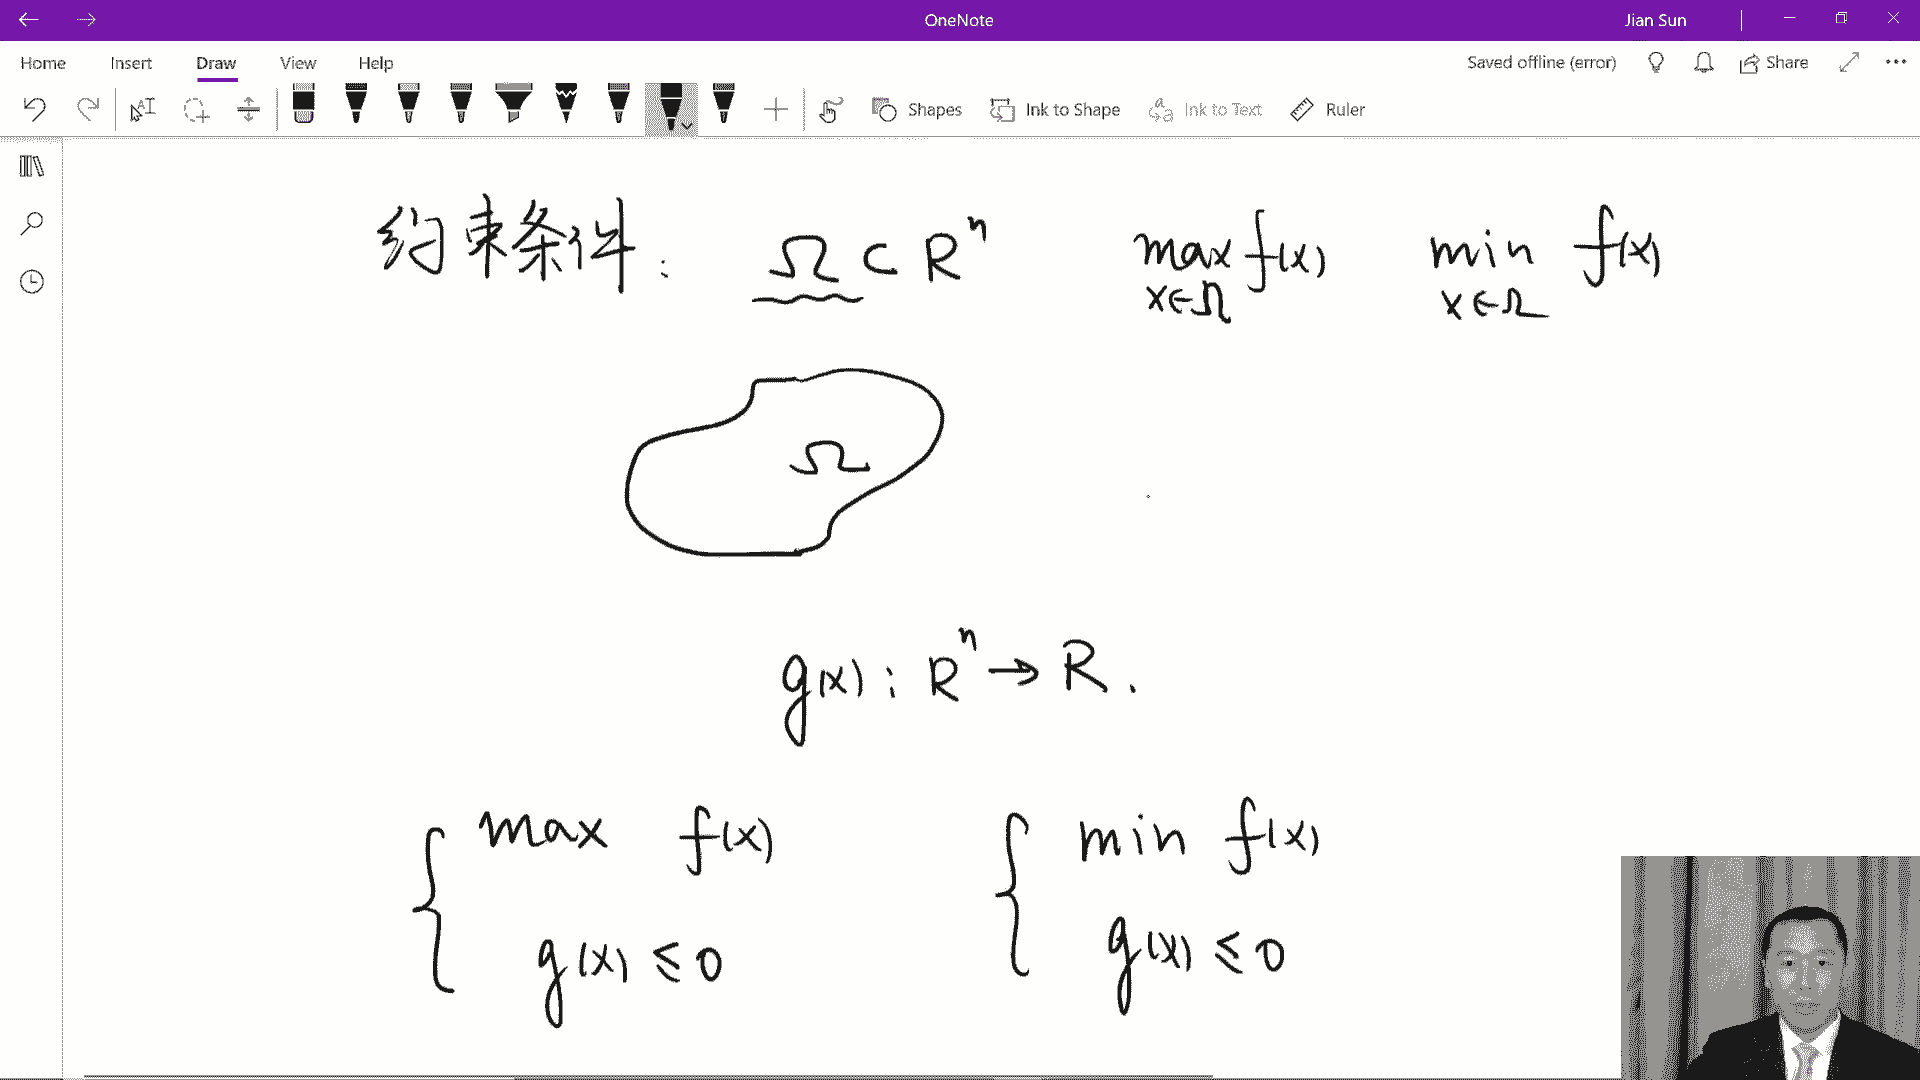 OneNote
Jian Sun
Home Insert Draw View Help
Saved offline (error) Share
Shapes Ink to Shape Ink to Text Ruler
约束条件: Ω ⊂ Rⁿ max f(x) min f(x)
x∈Ω x∈Ω
Ω
g(x): Rⁿ → R.
{ max f(x) { min f(x)
g(x) ≤ 0 g(x) ≤ 0